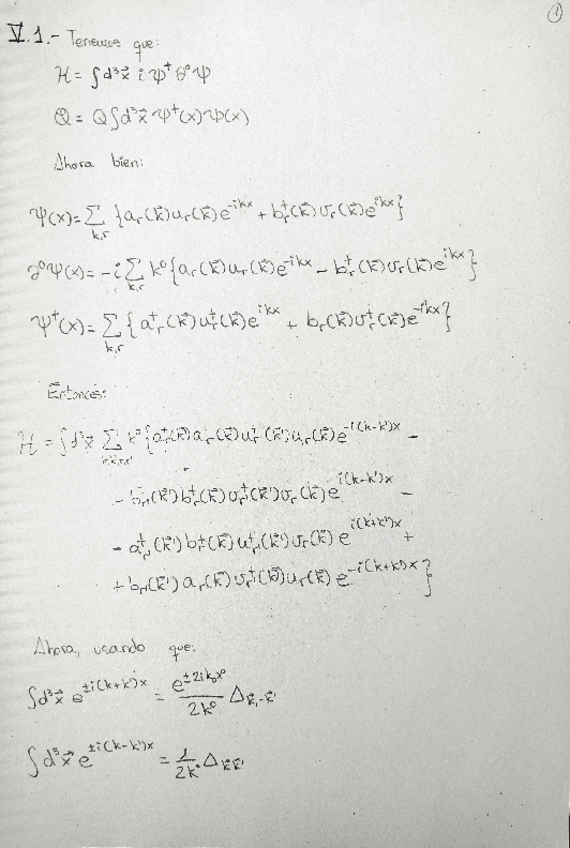 ①
V.1.- Tenemos que:
H = ∫d³x⃗ i ψ† ∂⁰ ψ
Q = Q∫d³x⃗ ψ†(x)ψ(x)
Ahora bien:
ψ(x) = Σ_{k,r} {a_r(k⃗)u_r(k⃗)e^{-ikx} + b_r†(k⃗)v_r(k⃗)e^{ikx}}
∂⁰ψ(x) = -i Σ_{k,r} k⁰{a_r(k⃗)u_r(k⃗)e^{-ikx} - b_r†(k⃗)v_r(k⃗)e^{ikx}}
ψ†(x) = Σ_{k,r} {a_r†(k⃗)u_r†(k⃗)e^{ikx} + b_r(k⃗)v_r†(k⃗)e^{-ikx}}
Entonces:
H = ∫d³x⃗ Σ_{k,k',r,r'} k⁰{a_r'†(k⃗')a_r(k⃗)u_r'†(k⃗')u_r(k⃗)e^{-i(k-k')x} -
- b_r'(k⃗')b_r†(k⃗)v_r'†(k⃗')v_r(k⃗)e^{i(k-k')x} -
- a_r'†(k⃗')b_r†(k⃗)u_r'†(k⃗')v_r(k⃗)e^{i(k+k')x} +
+ b_r'(k⃗')a_r(k⃗)v_r'†(k⃗')u_r(k⃗)e^{-i(k+k')x}}
Ahora, usando que:
∫d³x⃗ e^{±i(k+k')x} = e^{±2ik₀x⁰}/2k⁰ Δ_{k⃗,-k⃗'}
∫d³x⃗ e^{±i(k-k')x} = 1/2k⁰ Δ_{k⃗k⃗'}